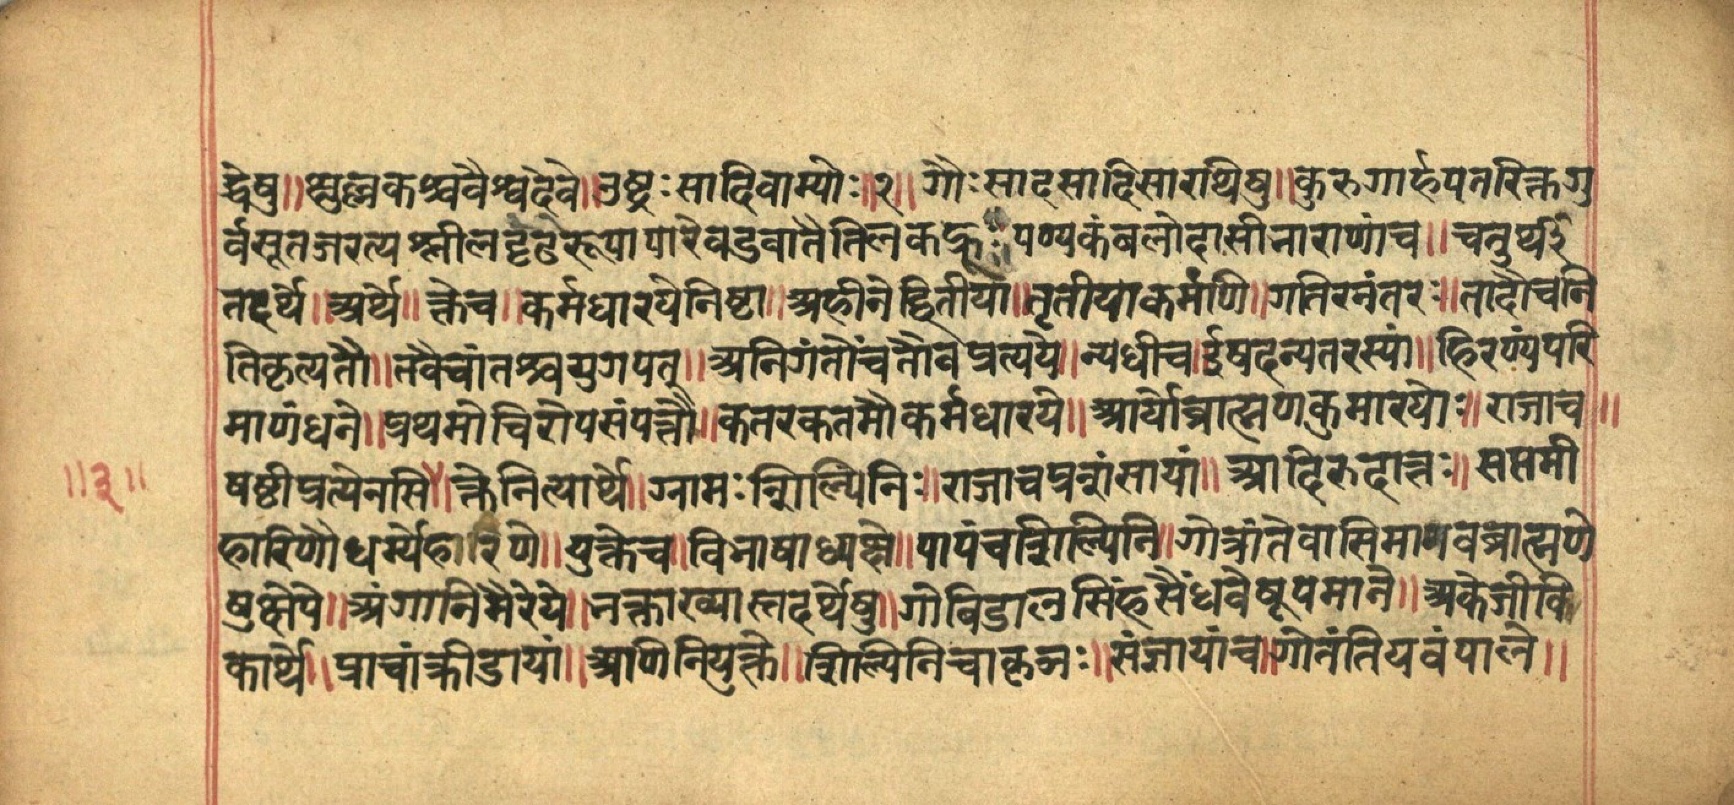 द्धेषु॥क्षुल्लकश्चवैश्वदेवे॥उष्ट्रःसादिवाम्योः॥२॥गौःसादसादिसारथिषु॥कुरुगार्हपतरिक्तगु
र्वसूतजरत्यश्लीलदृढरूपापारेवडवातैतिलकद्रूःपण्यकंबलोदासीभाराणांच॥चतुर्थी
तदर्थे॥अर्थे॥क्तेच॥कर्मधारयेनिष्टा॥अहीनेद्वितीया॥तृतीयाकर्मणि॥गतिरनंतरः॥तादौचनि
तिकृत्यतौ॥तवैचांतश्चयुगपत्॥अनिगंतोंचतौवप्रत्यये॥न्यधीच॥ईषदन्यतरस्यां॥हिरण्यंपरि
माणंधने॥प्रथमोचिरोपसंपत्तौ॥कतरकतमौकर्मधारये॥आर्योब्राह्मणकुमारयोः॥राजाच॥
षष्टीप्रत्येनसि॥क्तेनित्यार्थे॥ग्रामःशिल्पिनिः॥राजाचप्रशंसायां॥आदिरुदात्तः॥सप्तमी
॥३॥
हारिणौधर्म्येहारिणे॥युक्तेच॥विभाषाध्यक्षे॥पापंचशिल्पिनि॥गोत्रांतेवासिमाणवब्राह्मणे
षुक्षेपे॥अंगानिमैरेये॥भक्ताख्यास्तदर्थेषु॥गोबिडालसिंहसैंधवेषूपमाने॥अकेजीवि
कार्थे॥प्राचांक्रीडायां॥अणिनियुक्ते॥शिल्पिनिचाकृञः॥संज्ञायांच॥गोतंतियवंपाले॥